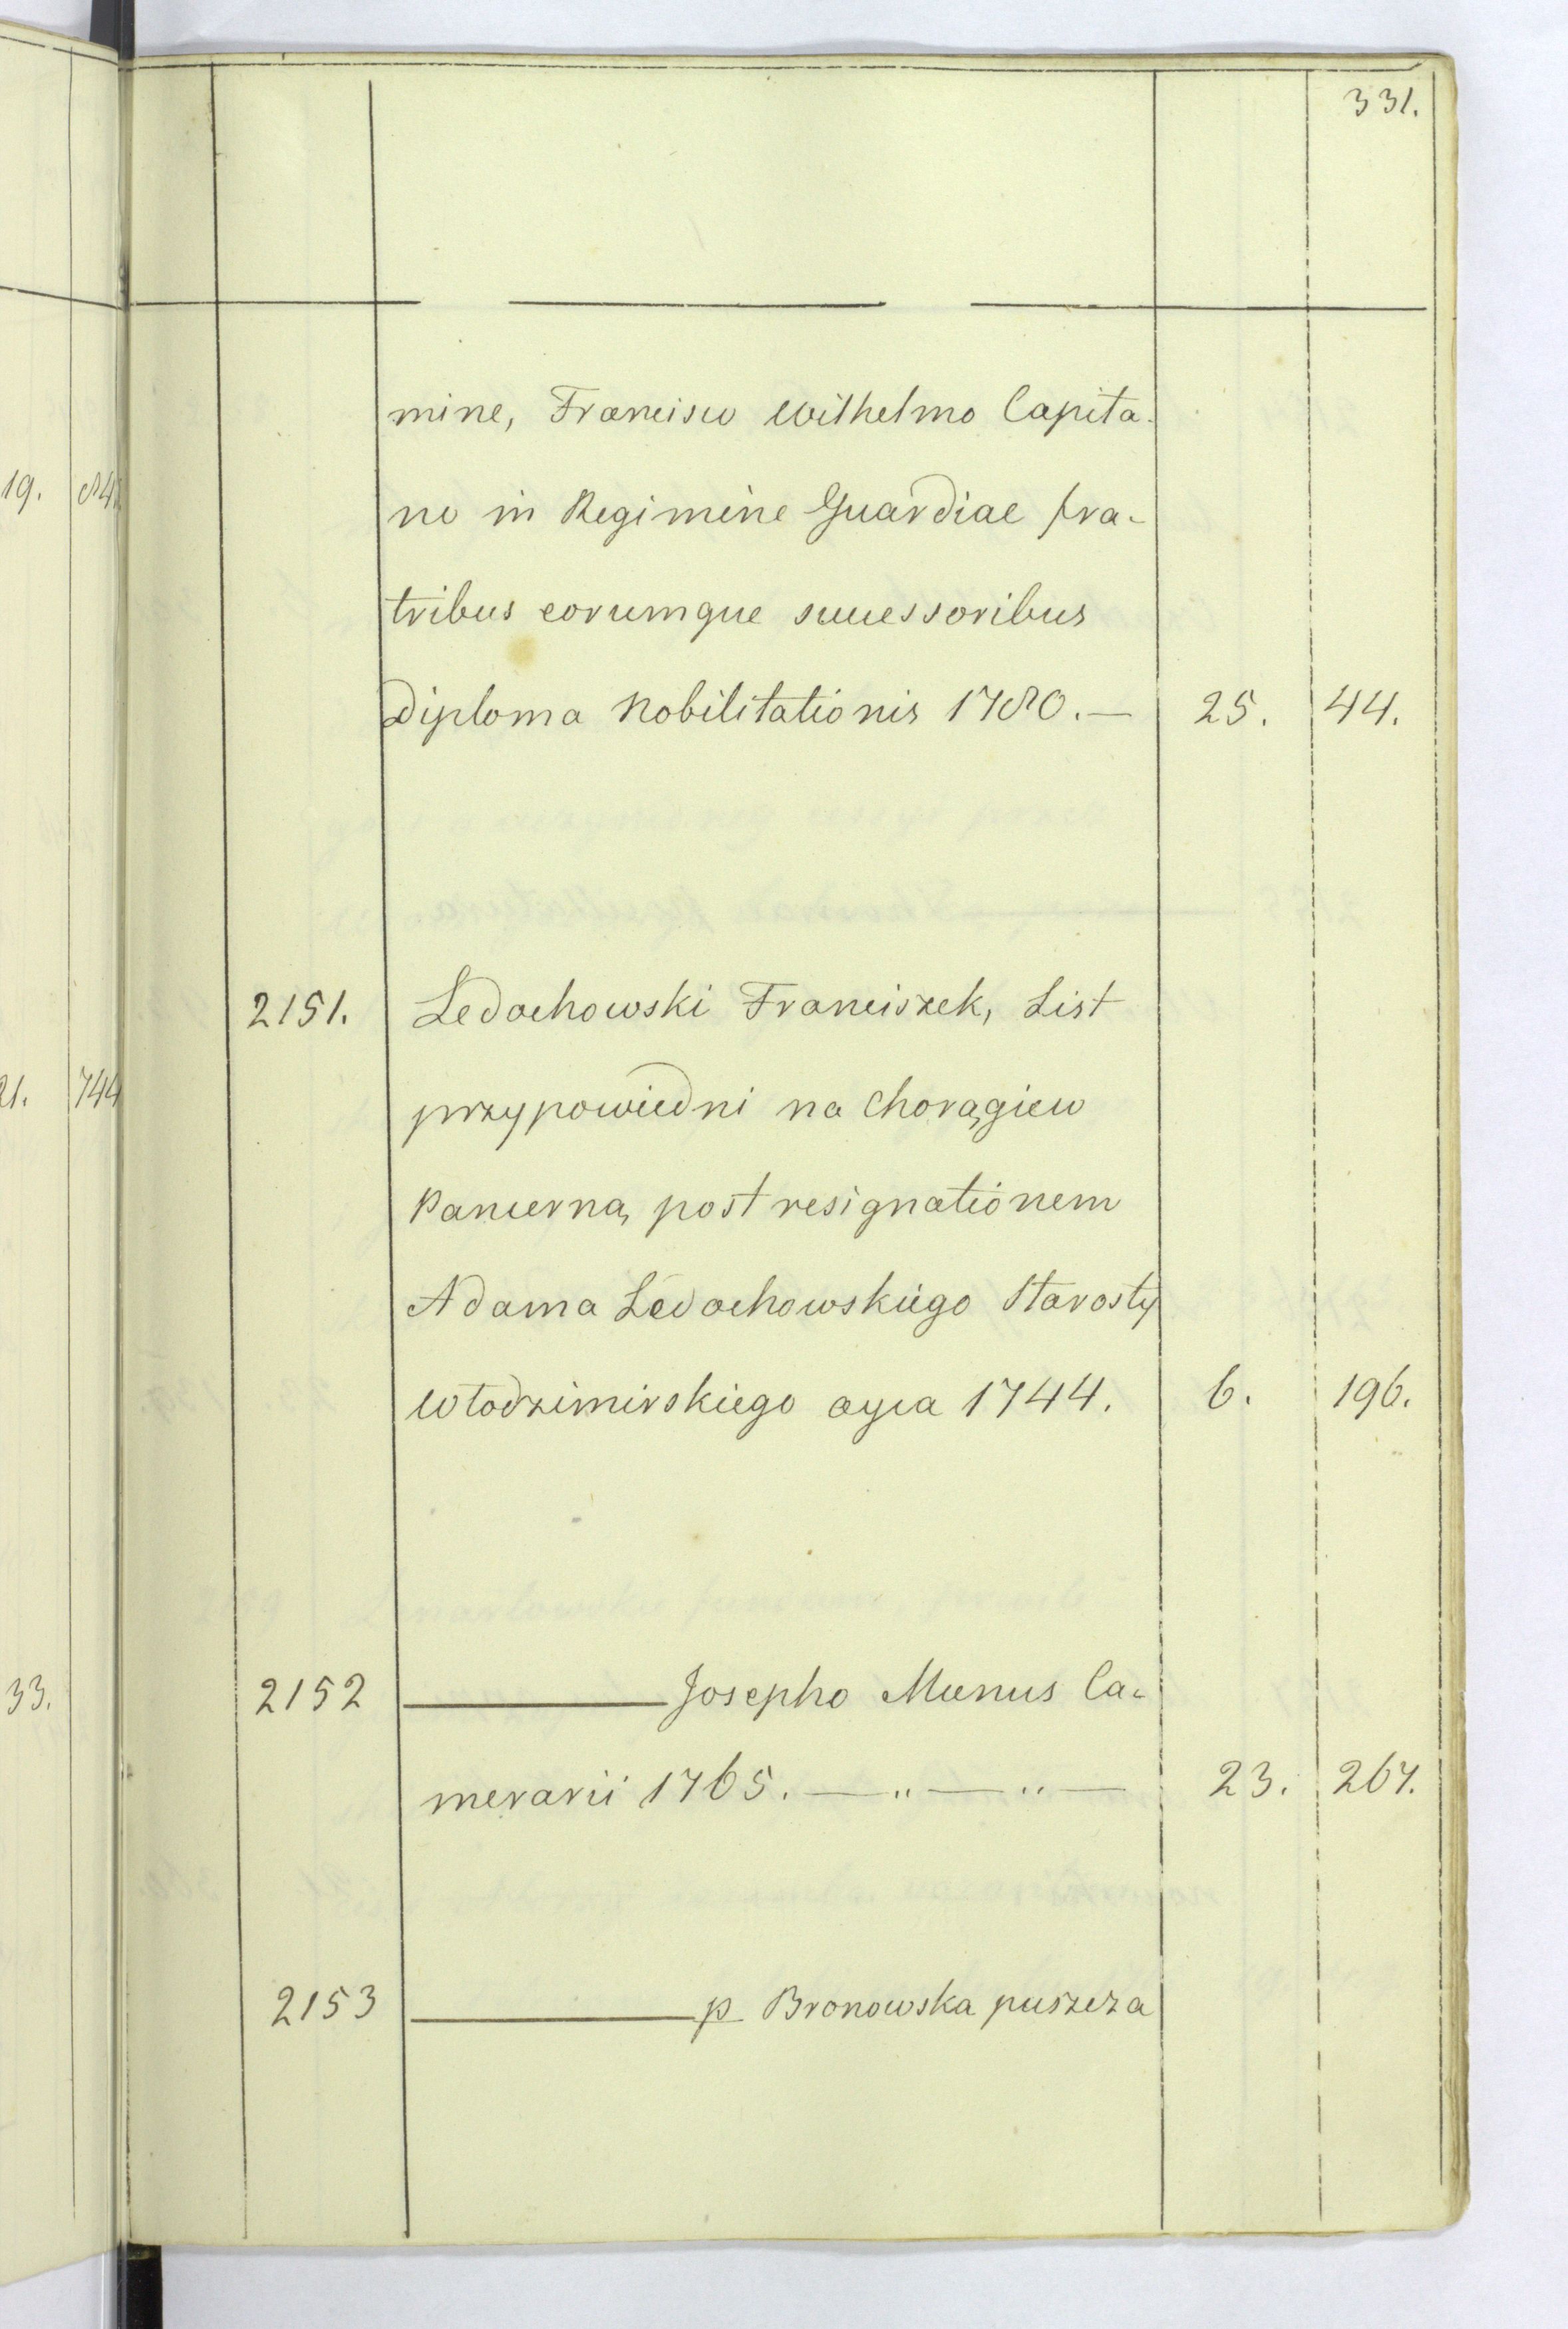 331.
mine, Francisco Wilhelmo Capita-
no in Regimine Guardiae fra-
tribus eorumque successoribus
Diploma Nobilitationis 1780. — 25. 44.
2151. Ledochowski Franciszek, List
przypowiedni na Chorągiew
Pancerną post resignationem
Adama Ledochowskiego Starosty
Włodzimirskiego ayca 1744. 6. 196.
2152 ——— Josepho Munus Ca-
merarii 1765. — „ — „ — 23. 267.
2153 ——— p Bronowska puszcza
19.
21. 744
33.